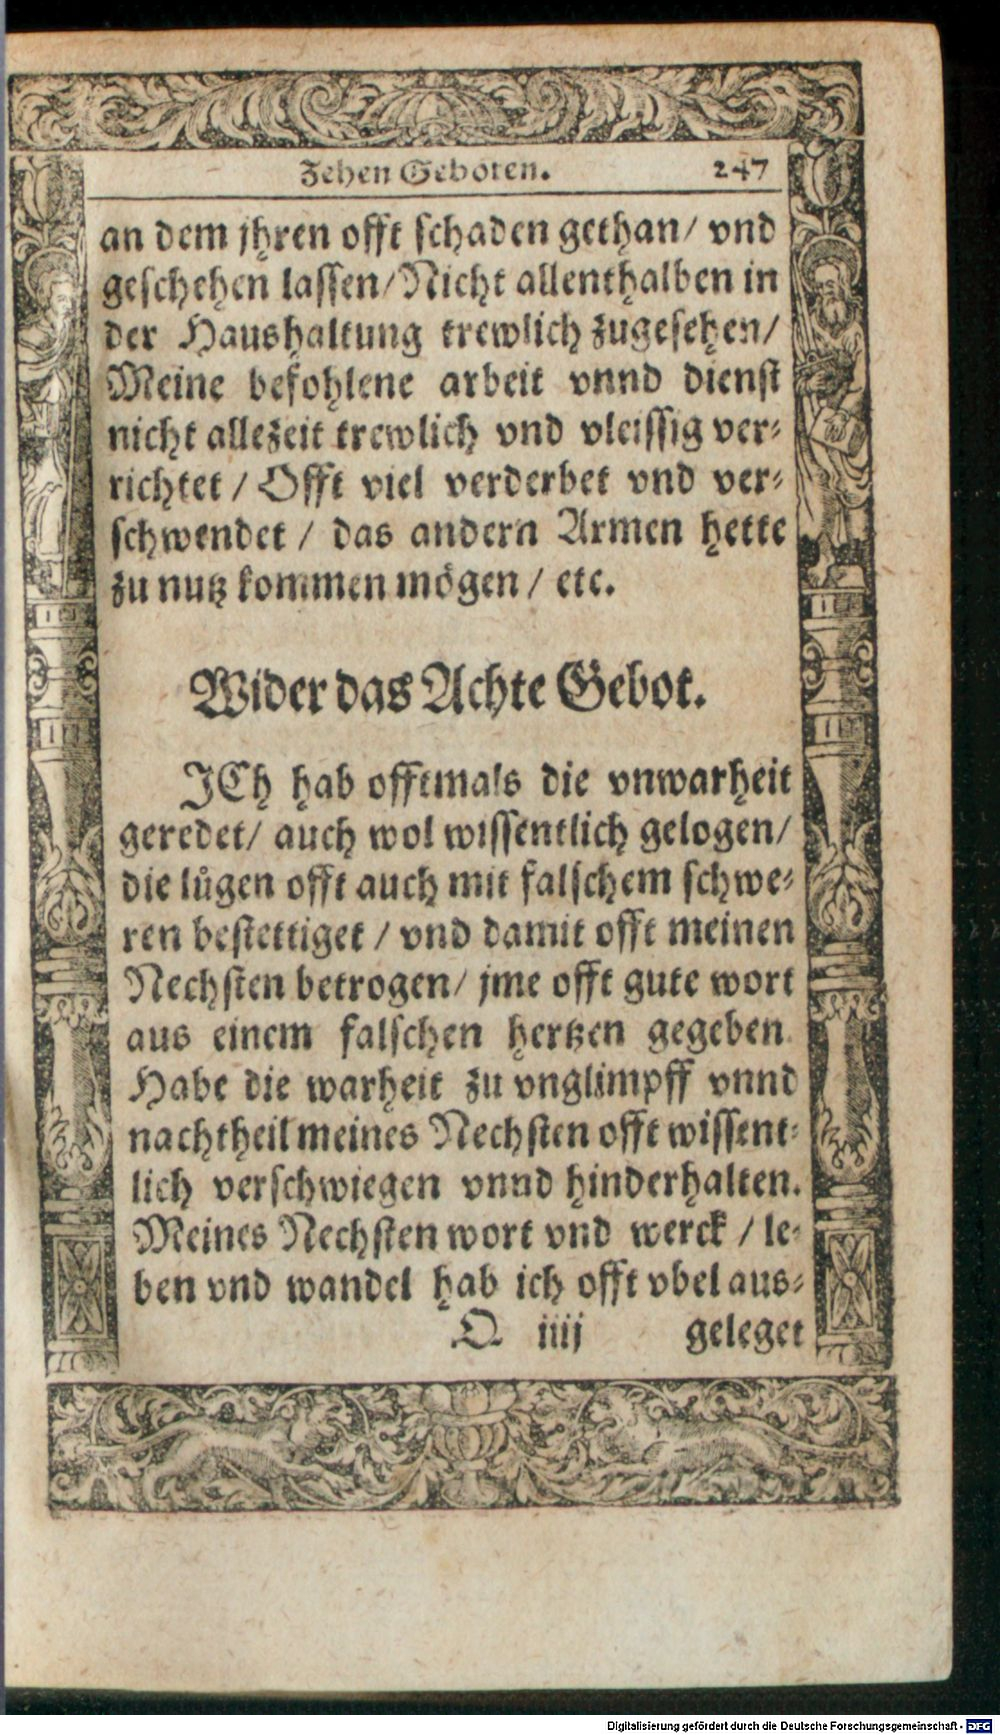 Zehen Geboten. 247
an dem jhren offt schaden gethan/ vnd
geschehen lassen/ Nicht allenthalben in
der Haushaltung trewlich zugesehen/
Meine befohlene arbeit vnnd dienst
nicht allezeit trewlich vnd vleissig ver⸗
richtet / Offt viel verderbet vnd ver⸗
schwendet / das andern Armen hette
zu nutz kommen mögen / etc.
Wider das Achte Gebot.
JCh hab offtmals die vnwarheit
geredet/ auch wol wissentlich gelogen/
die lůgen offt auch mit falschem schwe⸗
ren bestettiget / vnd damit offt meinen
Nechsten betrogen/ jme offt gute wort
aus einem falschen hertzen gegeben.
Habe die warheit zu vnglimpff vnnd
nachtheil meines Nechsten offt wissent⸗
lich verschwiegen vnnd hinderhalten.
Meines Nechsten wort vnd werck / le⸗
ben vnd wandel hab ich offt vbel aus⸗
Q iiij geleget
Digitalisierung gefördert durch die Deutsche Forschungsgemeinschaft - DFG